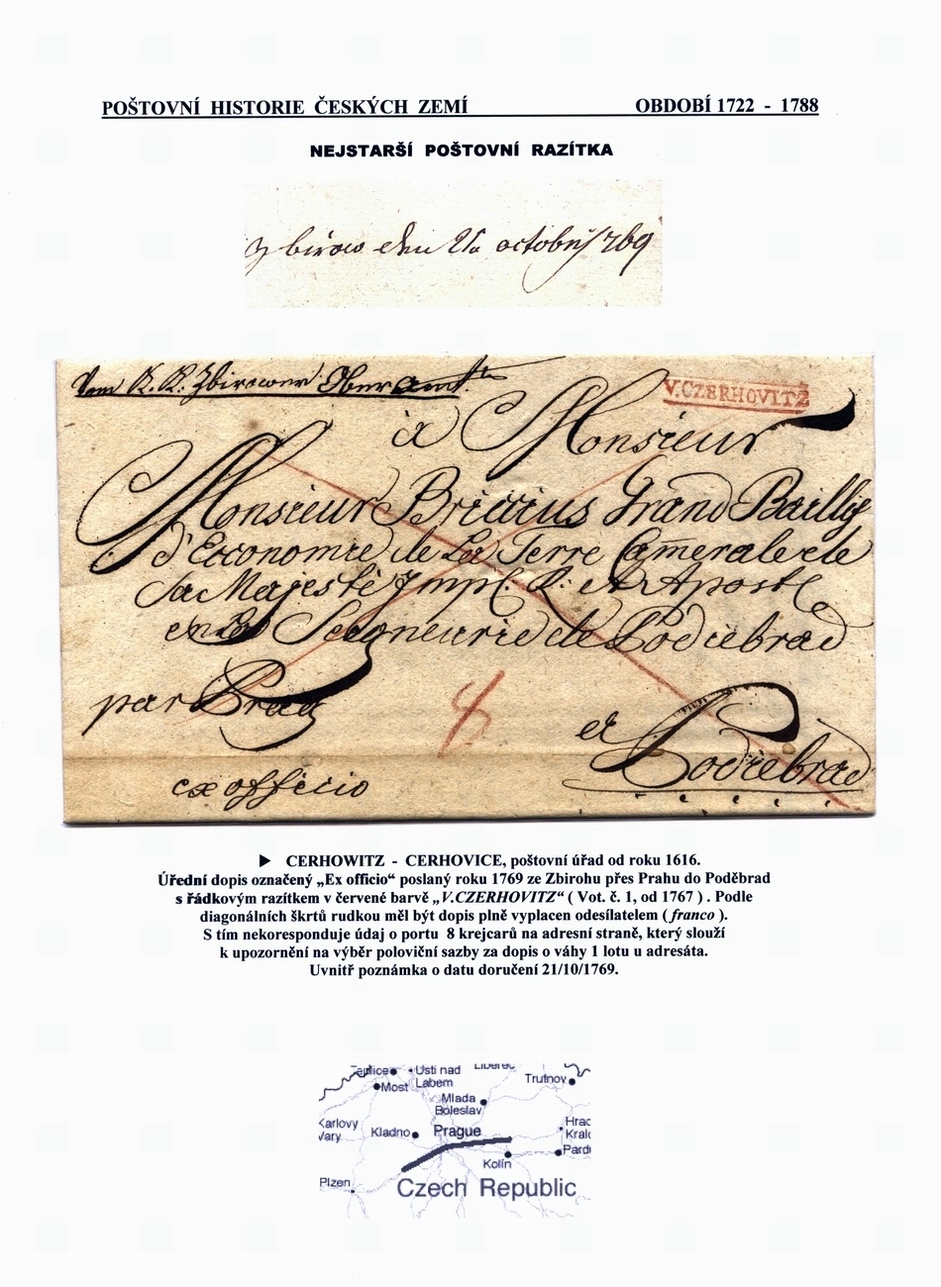 POŠTOVNÍ HISTORIE ČESKÝCH ZEMÍ OBDOBÍ 1722 - 1788
NEJSTARŠÍ POŠTOVNÍ RAZÍTKA
Zbirow den 21a octobris 769
Vom K. K. Zbirower Oberamt
V.CZERHOVITZ
à Monsieur
Monsieur Briccius Grand Bailly
d'Economie de La Terre Camerale de
Sa Majesté Impl. R: et Apostl
en La Seigneurie de Podiebrad
par Prag
8
et Podiebrad
ex officio
▶ CERHOWITZ - CERHOVICE, poštovní úřad od roku 1616.
Úřední dopis označený „Ex officio“ poslaný roku 1769 ze Zbirohu přes Prahu do Poděbrad
s řádkovým razítkem v červené barvě „V.CZERHOVITZ“ ( Vot. č. 1, od 1767 ) . Podle
diagonálních škrtů rudkou měl být dopis plně vyplacen odesílatelem ( franco ).
S tím nekoresponduje údaj o portu 8 krejcarů na adresní straně, který slouží
k upozornění na výběr poloviční sazby za dopis o váhy 1 lotu u adresáta.
Uvnitř poznámka o datu doručení 21/10/1769.
Teplice Usti nad Labem Liberec
Most
Trutnov
Mlada Boleslav
Karlovy Vary
Kladno
Prague
Hrac Kralo
Pardu
Kolín
Plzen
Czech Republic